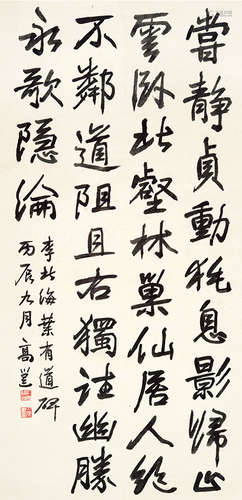 嘗靜貞動耗息影歸山
雲卧北壑林巢仙居人絕
不鄰道阻且右獨往幽勝
永歌隱淪
李北海葉有道碑
丙辰九月高